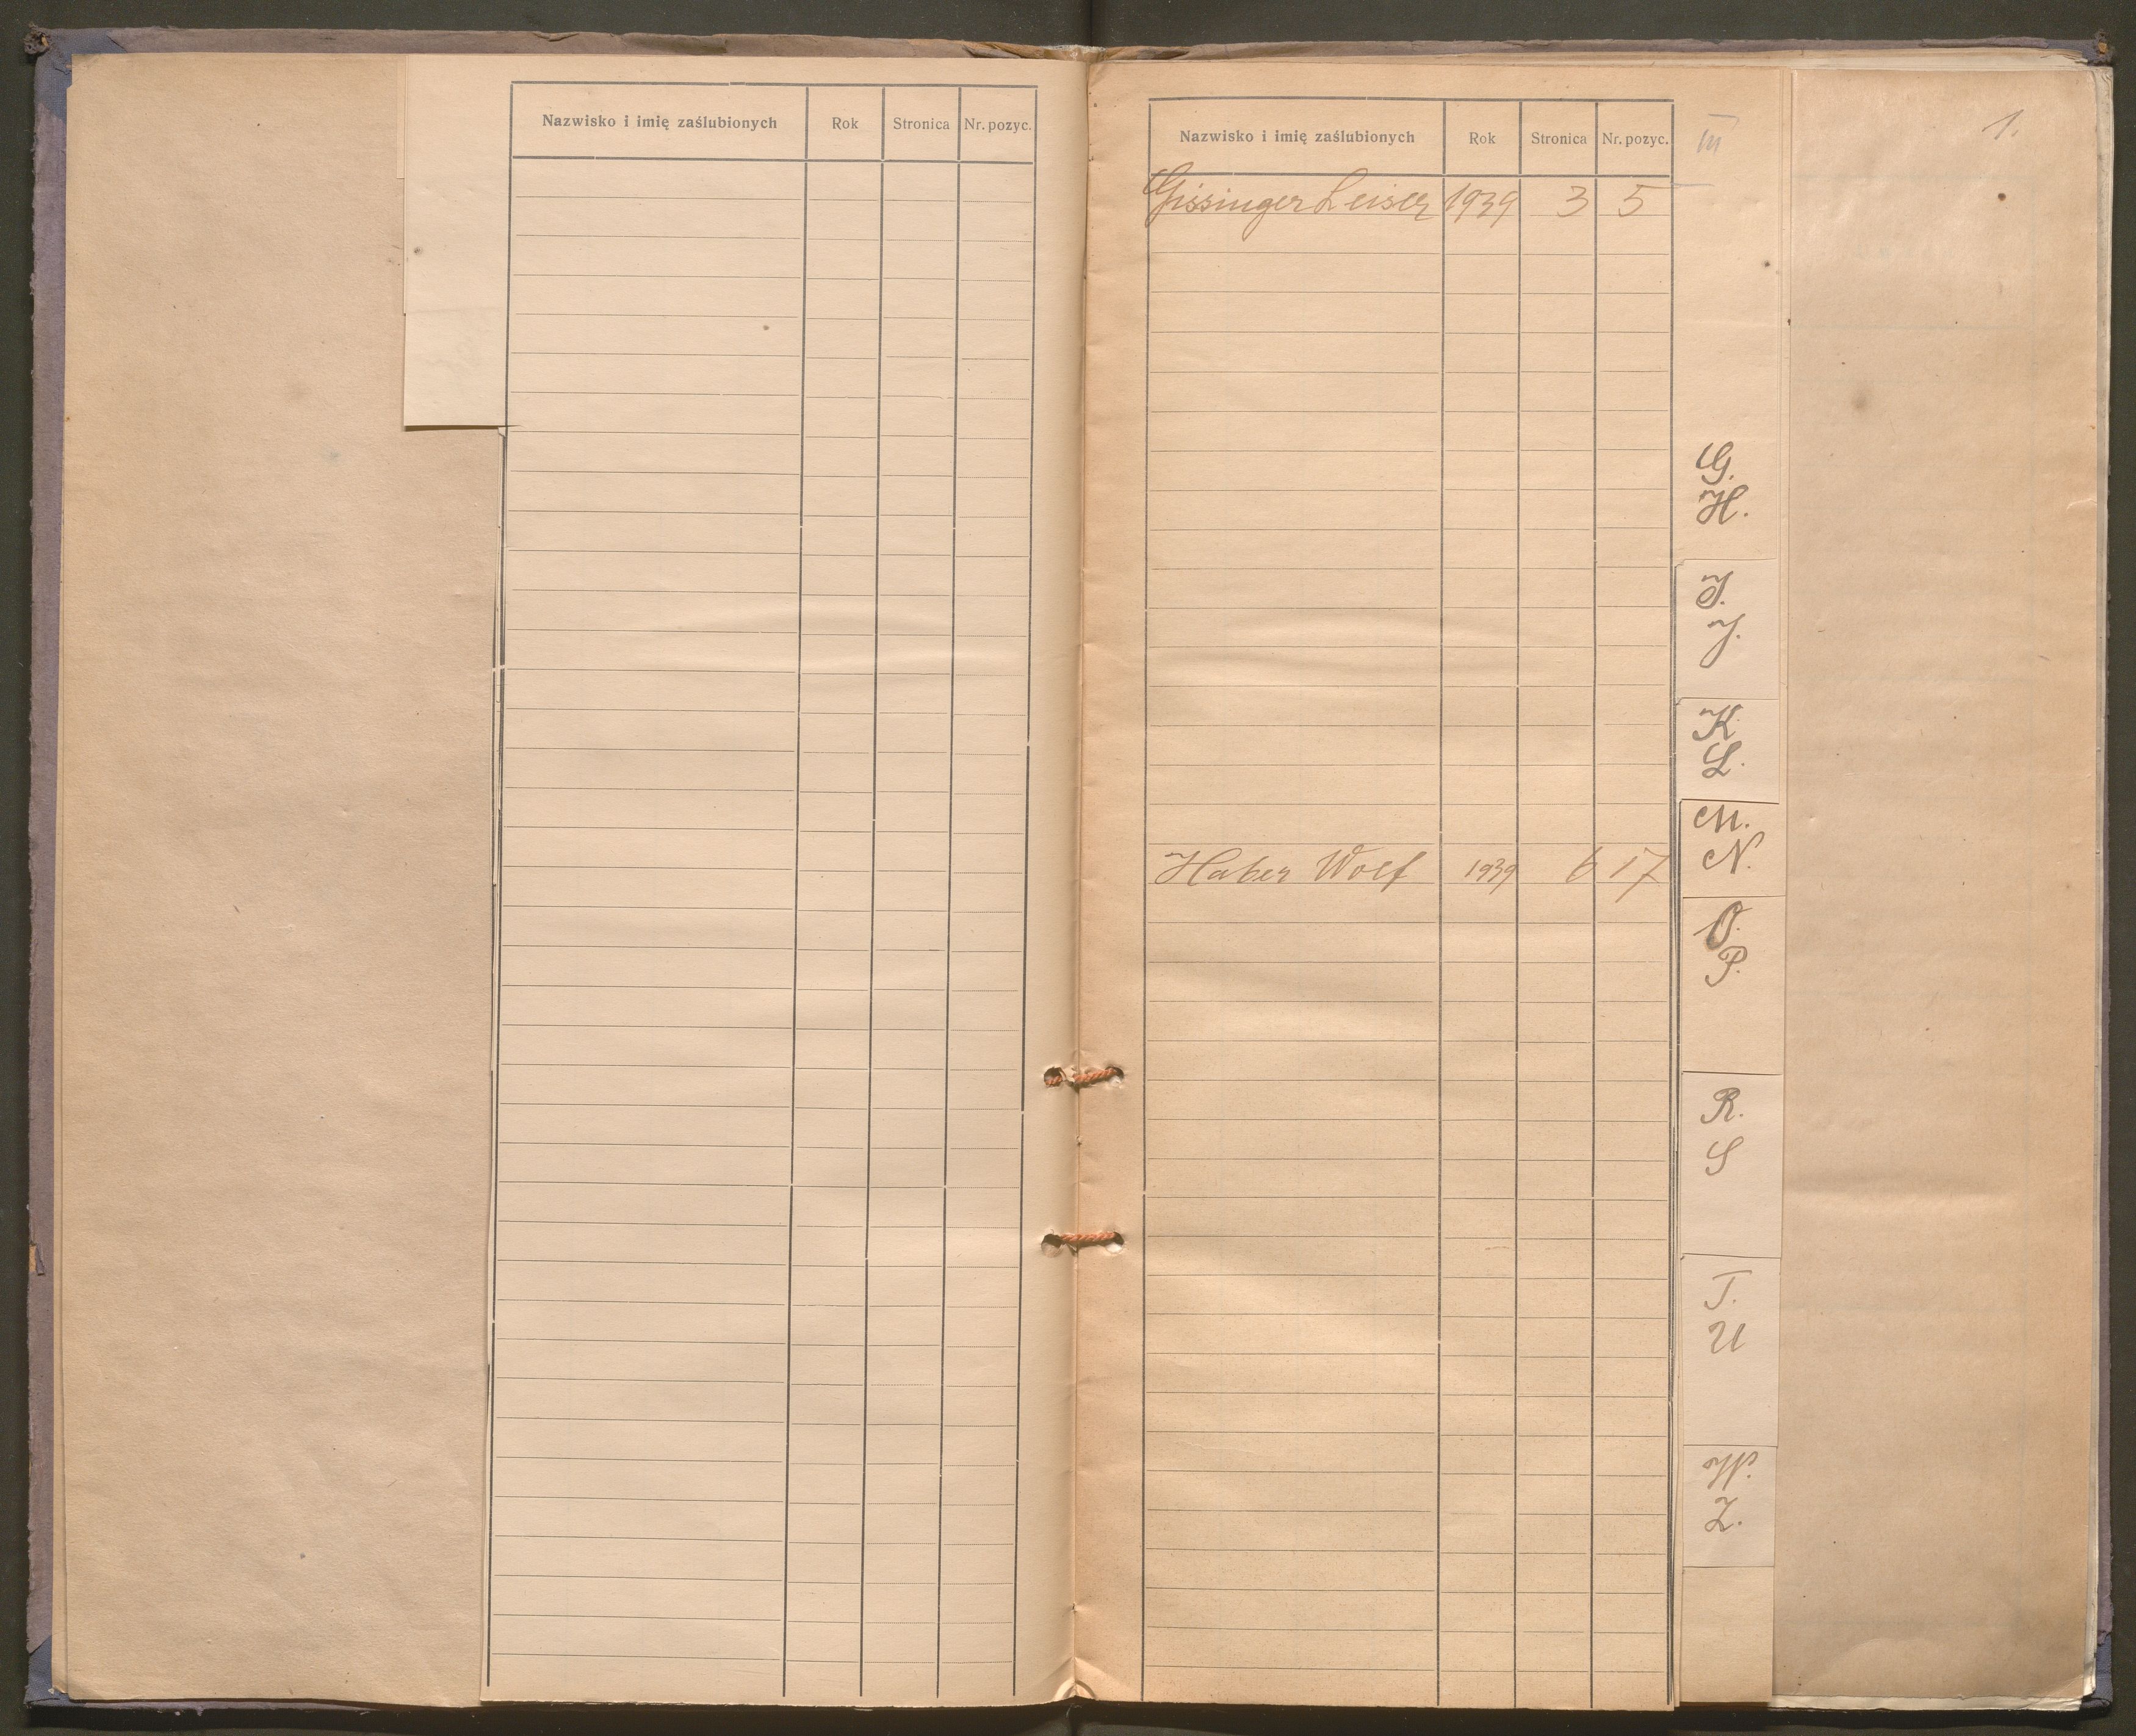 Nazwisko i imię zaślubionych Rok Stronica Nr. pozyc.
Nazwisko i imię zaślubionych Rok Stronica Nr. pozyc.
III
1.
Gissinger Leiser 1939 3 5
Haber Wolf 1939 6 17
G.
H.
I.
J.
K.
L.
M.
N.
O.
P.
R.
S
T.
U
W.
Z.